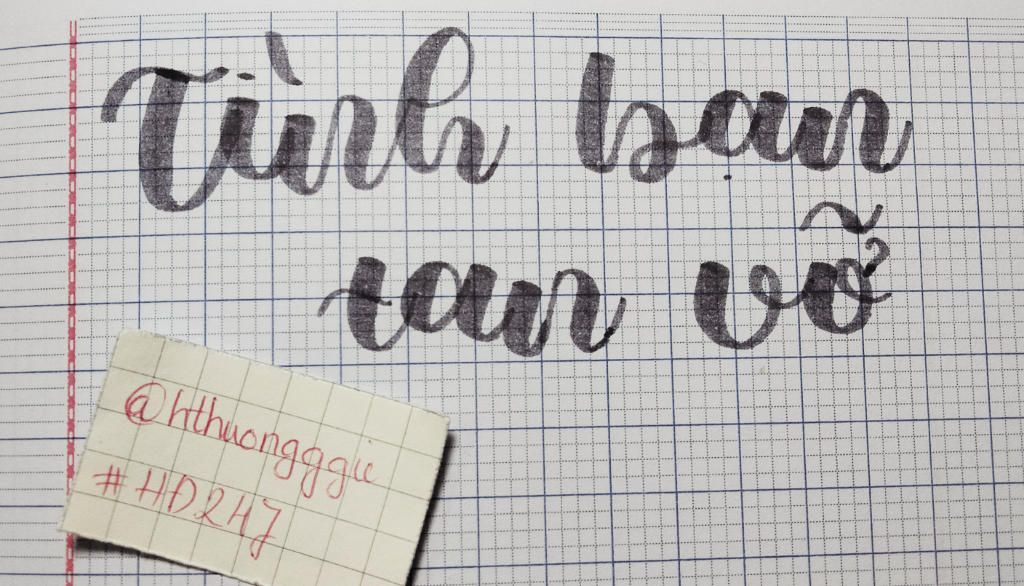 Tình bạn
tan vỡ
@hthuongggic
#HĐ2HJ